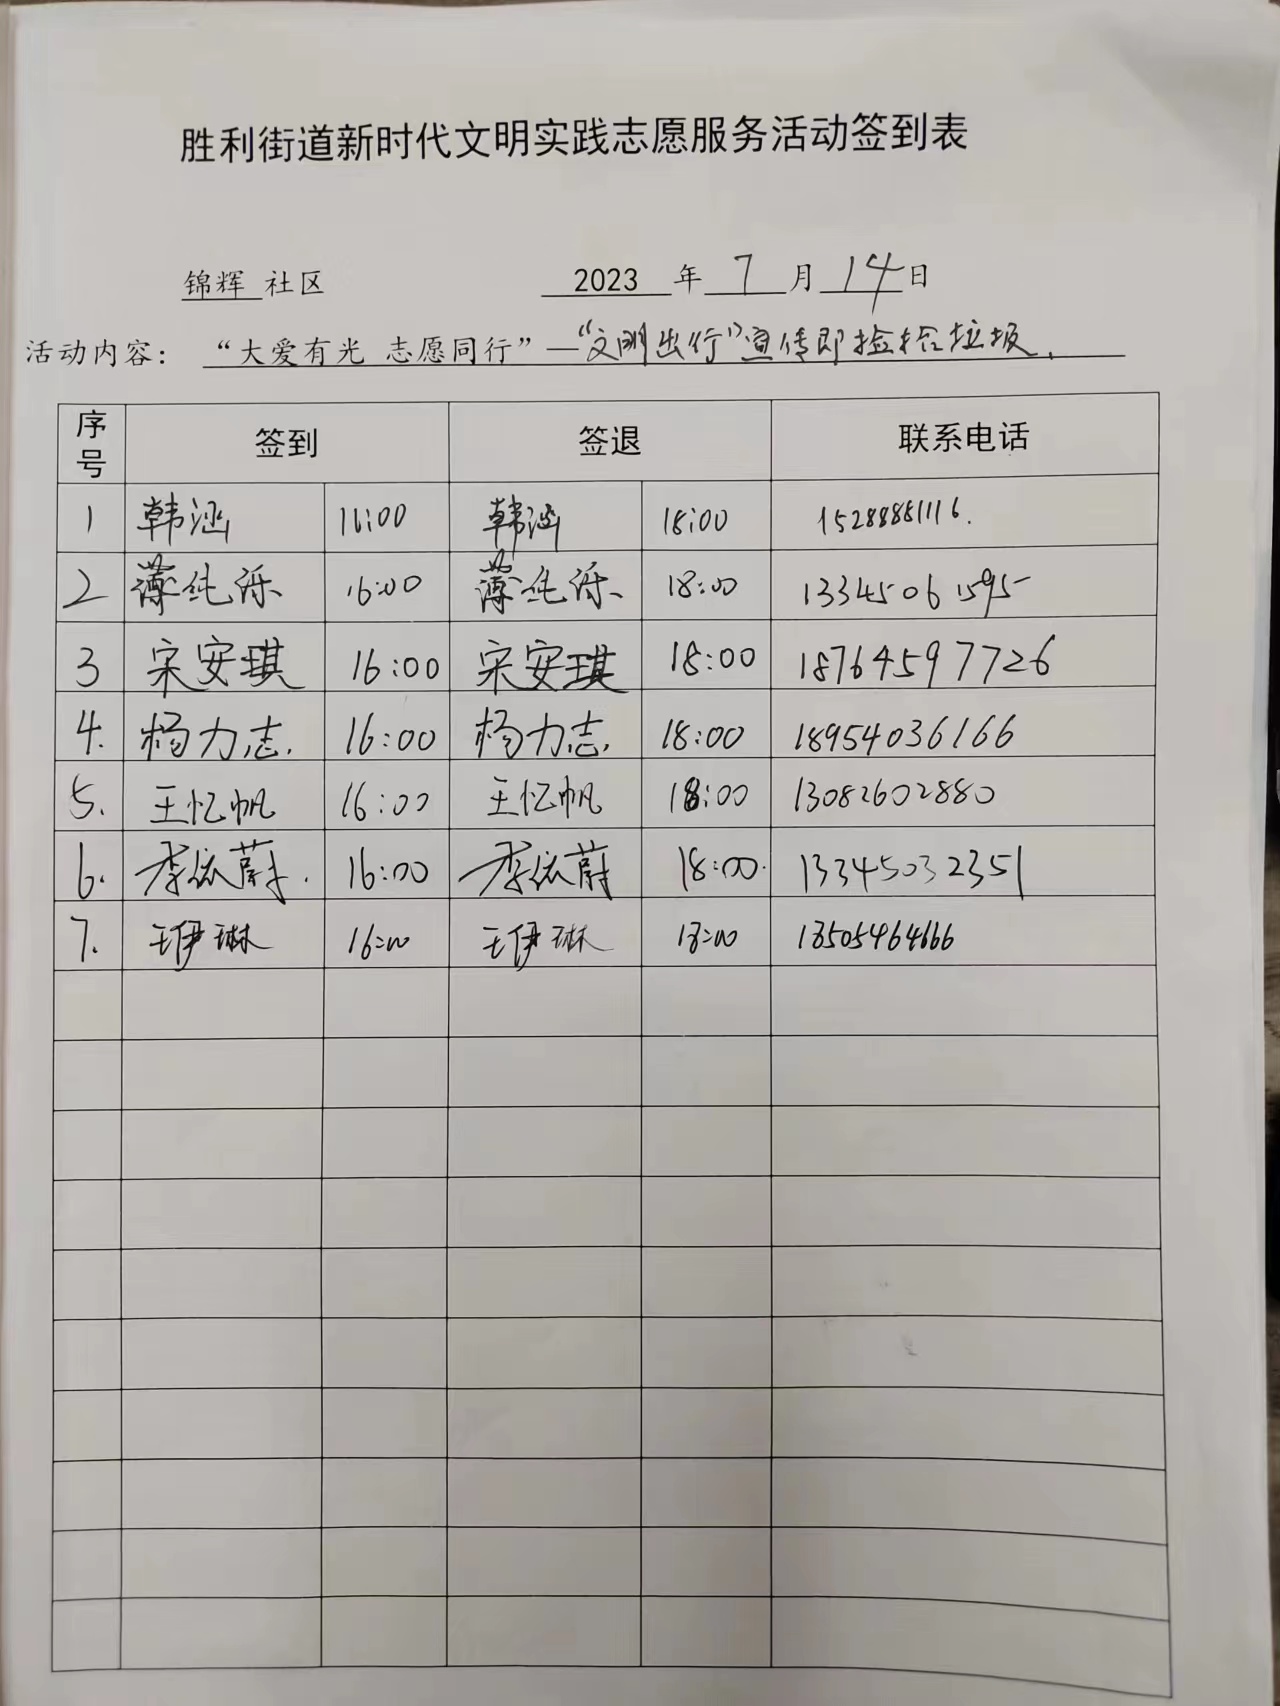 胜利街道新时代文明实践志愿服务活动签到表
锦辉 社区 2023 年 7 月 14 日
活动内容： “大爱有光 志愿同行”—“文明出行”宣传即捡拾垃圾.
序号 签到 签退 联系电话
1 韩涵 16:00 韩涵 18:00 15288881116.
2 薄纯泺 16:00 薄纯泺 18:00 13345061595
3 宋安琪 16:00 宋安琪 18:00 18764597726
4. 杨力志. 16:00 杨力志. 18:00 18954036166
5. 王忆帆 16:00 王忆帆 18:00 13082602880
6. 李依蔚. 16:00 李依蔚 18:00. 13345032351
7. 王伊琳 16:00 王伊琳 18:00 13505464666